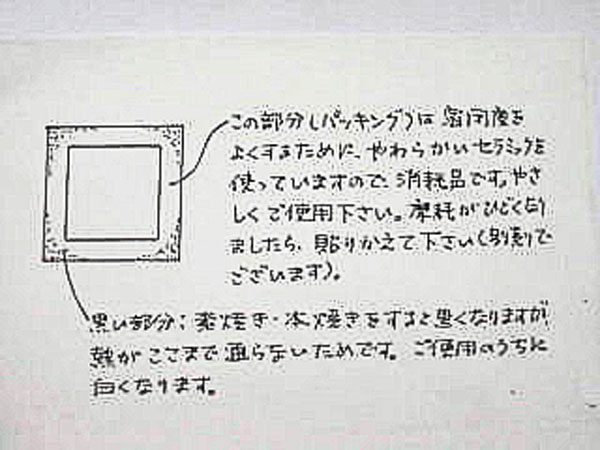 この部分(パッキング)は密閉度を
よくするために、やわらかいセラミックを
使っていますので、消耗品です。やさ
しくご使用下さい。摩耗がひどくなり
ましたら、貼りかえて下さい(別売りで
ございます)。
黒い部分；素焼き・本焼きをすると黒くなりますが、
熱がここまで通らないためです。ご使用のうちに
白くなります。